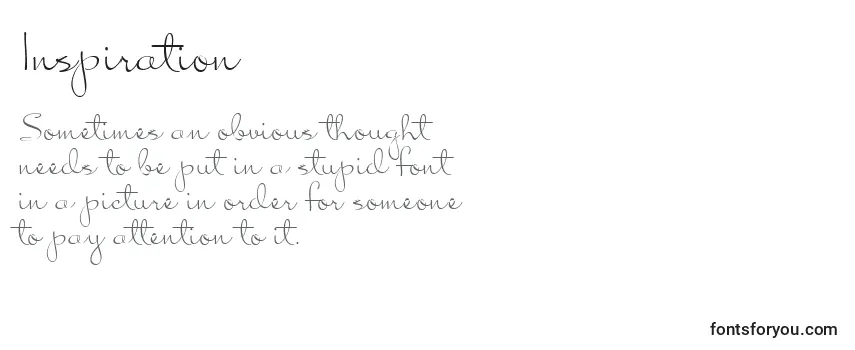 Inspiration
Sometimes an obvious thought
needs to be put in a stupid font
in a picture in order for someone
to pay attention to it.
fontsforyou.com